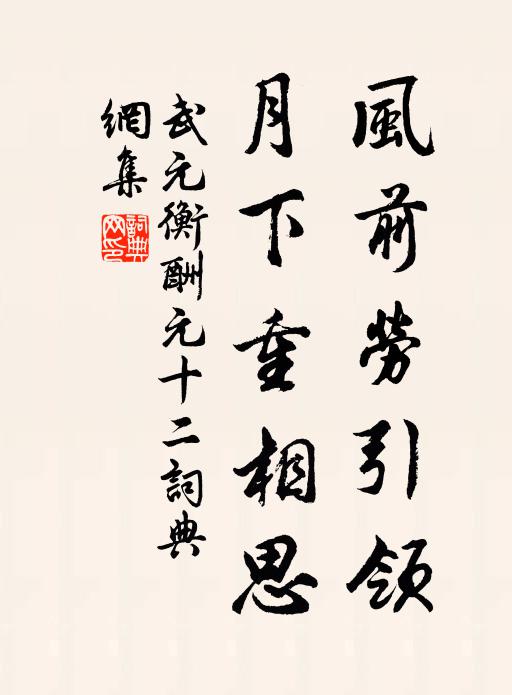 風前勞引領
月下重相思
武元衡酬元十二詞典
網集
詞典
网印